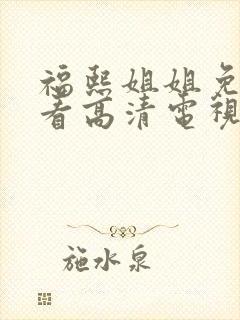 福熙姐姐免
看高清電視
施水泉